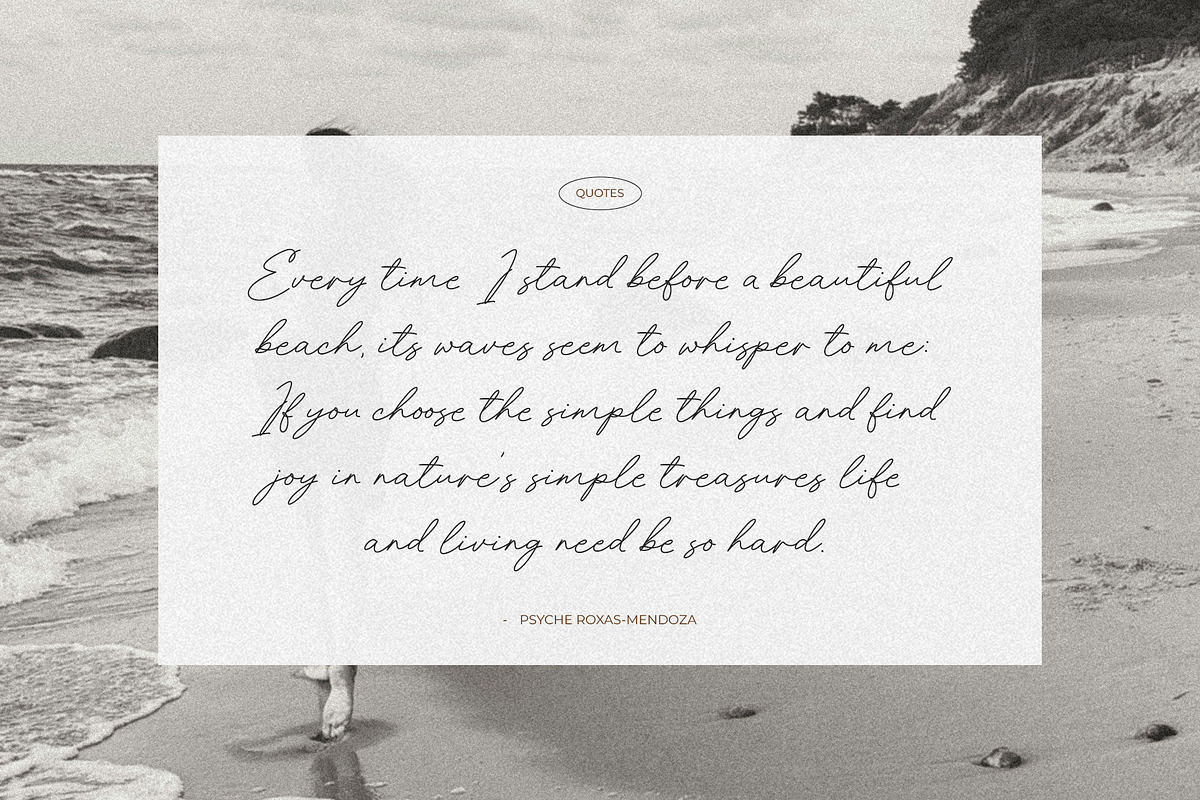 QUOTES
Every time I stand before a beautiful
beach, its waves seem to whisper to me:
If you choose the simple things and find
joy in nature's simple treasures life
and living need be so hard.
- PSYCHE ROXAS-MENDOZA